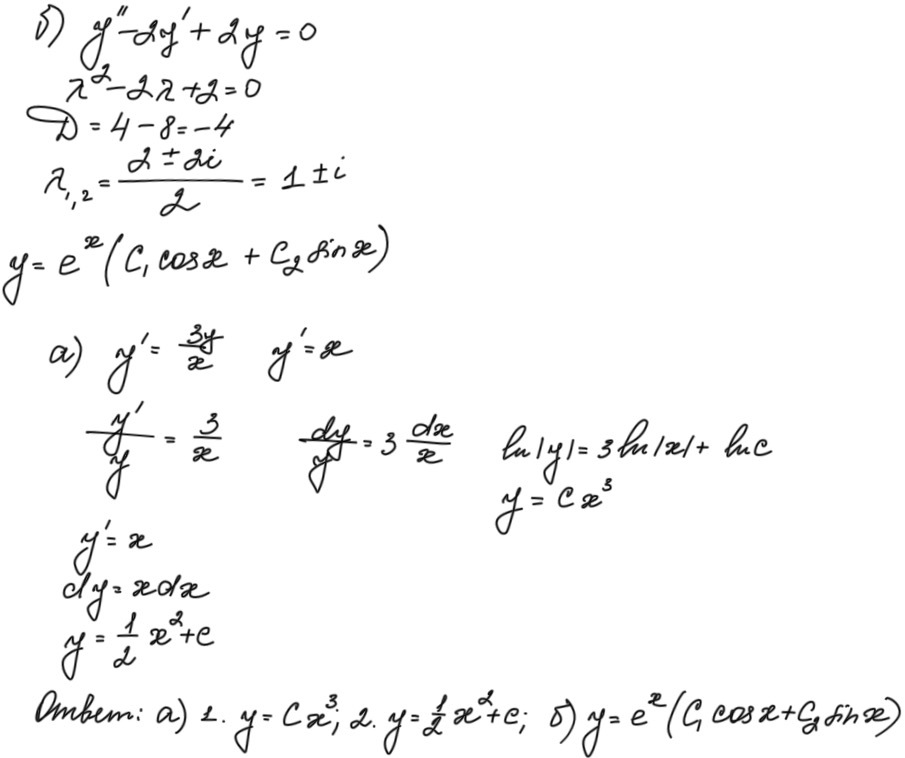 б) y'' - 2y' + 2y = 0
λ² - 2λ + 2 = 0
D = 4 - 8 = -4
λ₁,₂ = (2 ± 2i)/2 = 1 ± i
y = eˣ(C₁ cos x + C₂ sin x)
а) y' = 3y/x y' = x
y'/y = 3/x dy/y = 3 dx/x ln|y| = 3 ln|x| + ln c
y = Cx³
y' = x
dy = x dx
y = 1/2 x² + c
Ответ: а) 1. y = Cx³; 2. y = 1/2 x² + c; б) y = eˣ(C₁ cos x + C₂ sin x)